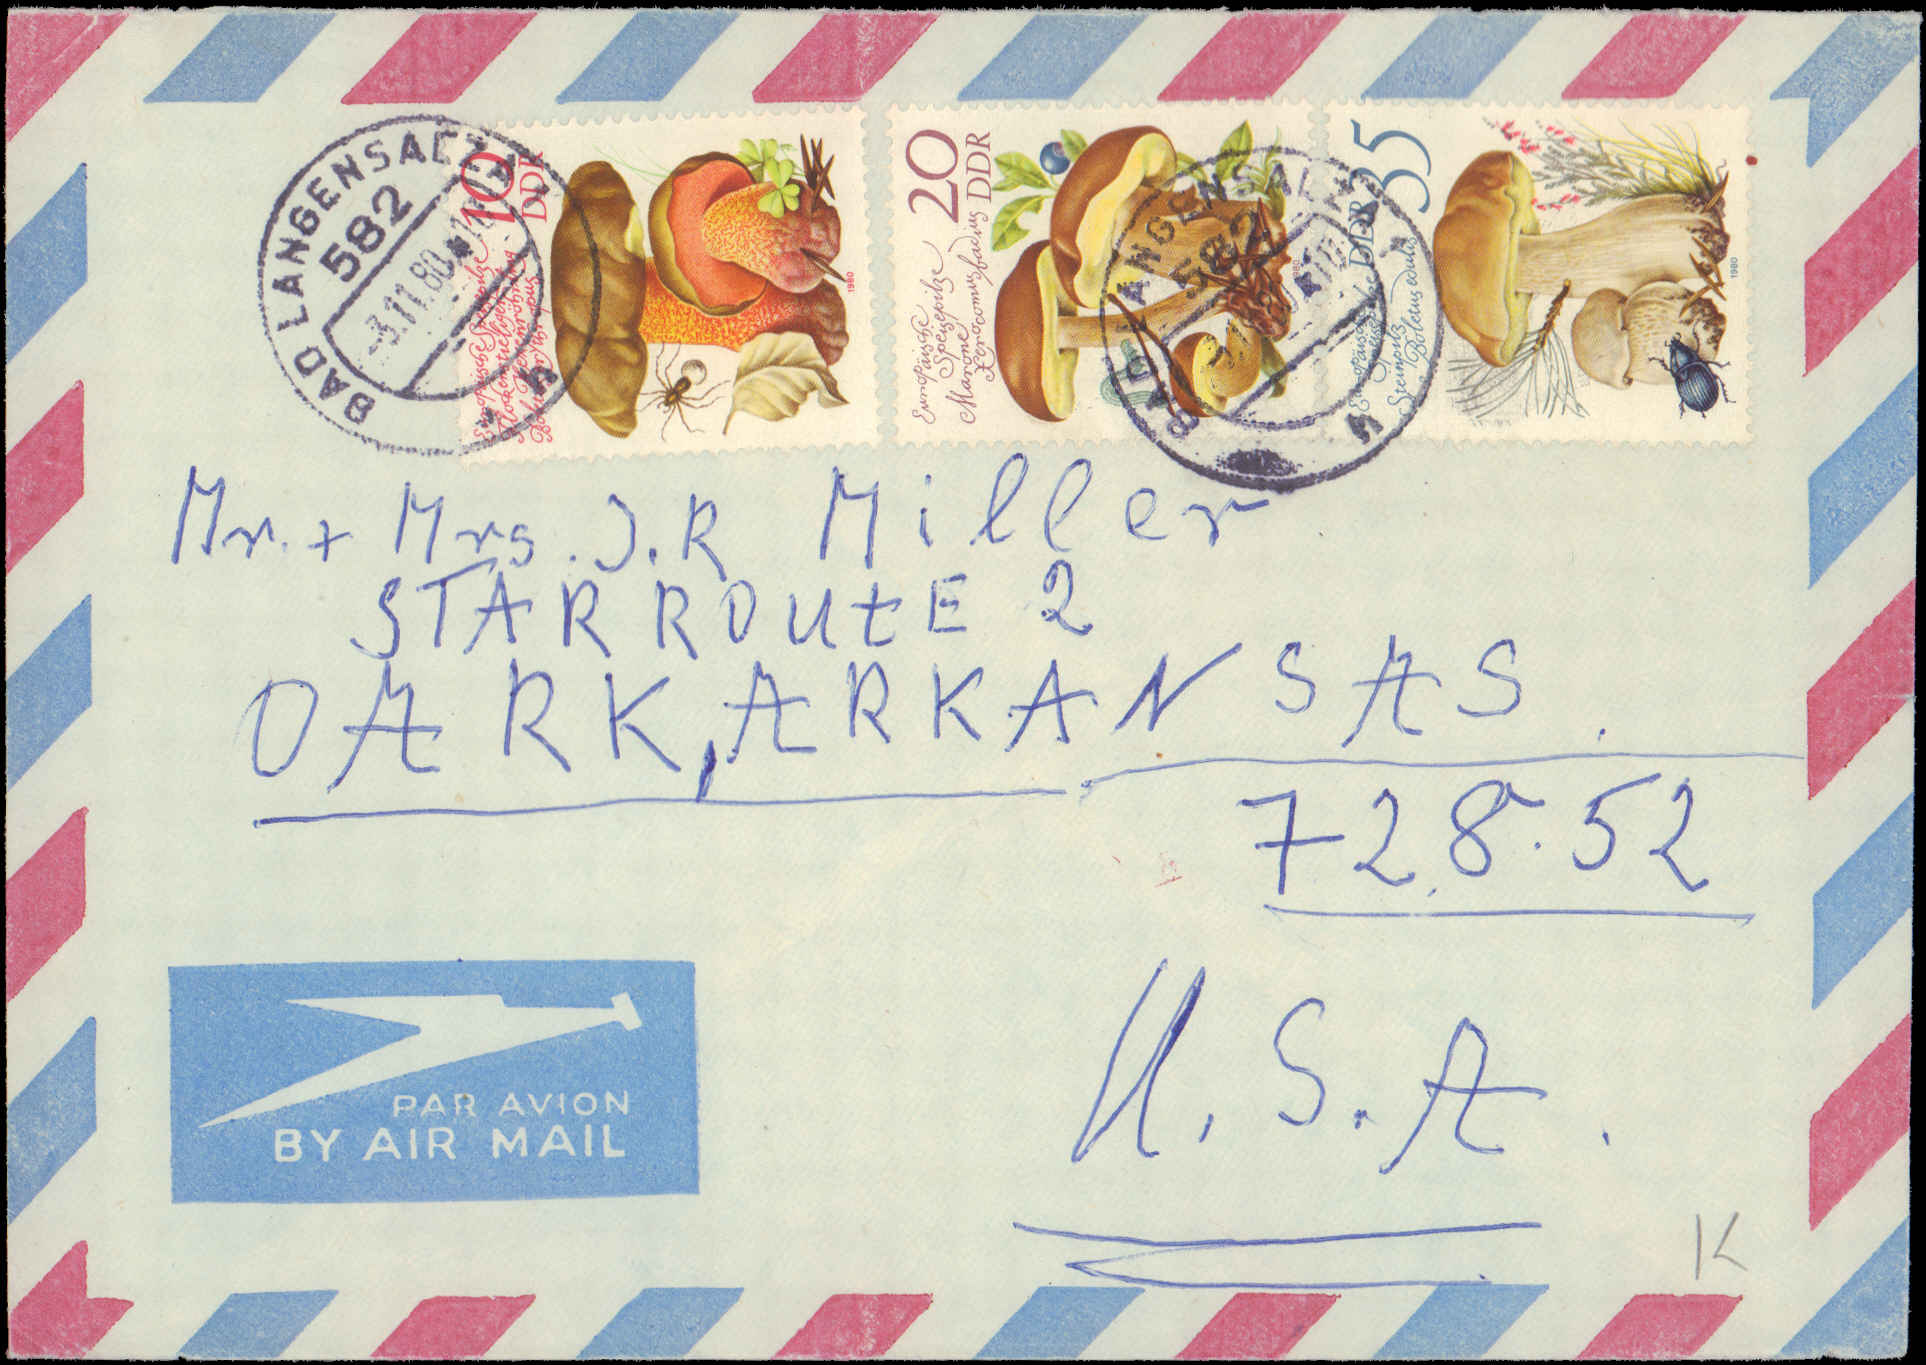 BAD LANGENSALZA 1
582
-3.11.80
10
DDR
Europäische Speisepilze
Flockenstieliger Hexenröhrling
1980
20
DDR
Europäische
Speisepilze
Marone
Xerocomus badius
1980
35
DDR
Steinpilz
Boletus edulis
1980
BAD LANGENSALZA 1
582
Mr. + Mrs. J.R Miller
STAR ROUtE 2
OARK, ARKANSAS.
72852
U.S.A.
PAR AVION
BY AIR MAIL
K